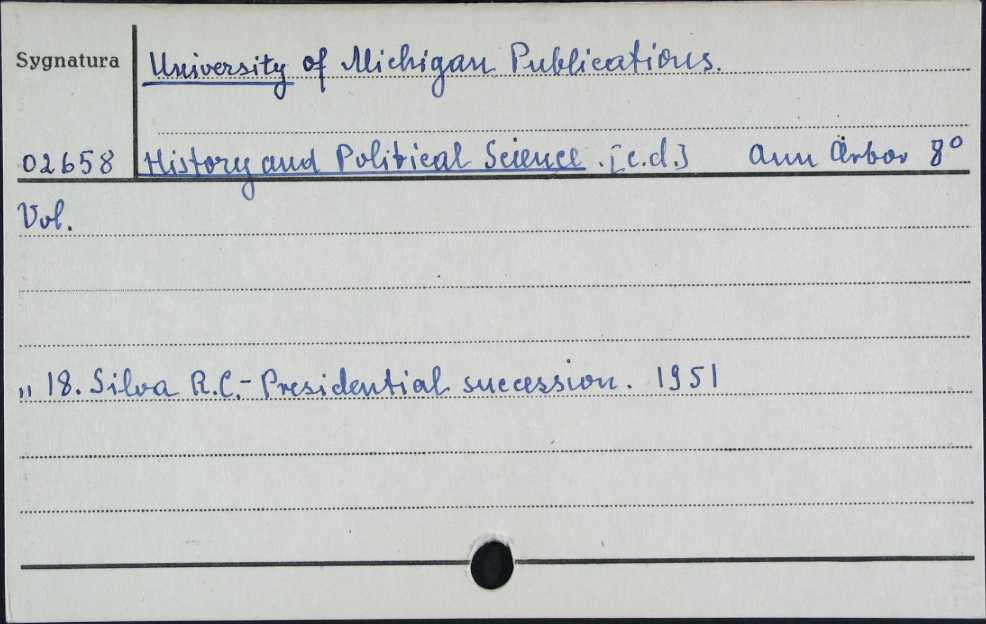 Sygnatura University of Michigan Publications.
02658 History and Political Science. [c.d.] Ann Arbor 8°
Vol.
„ 18. Silva R.C. - Presidential succession. 1951